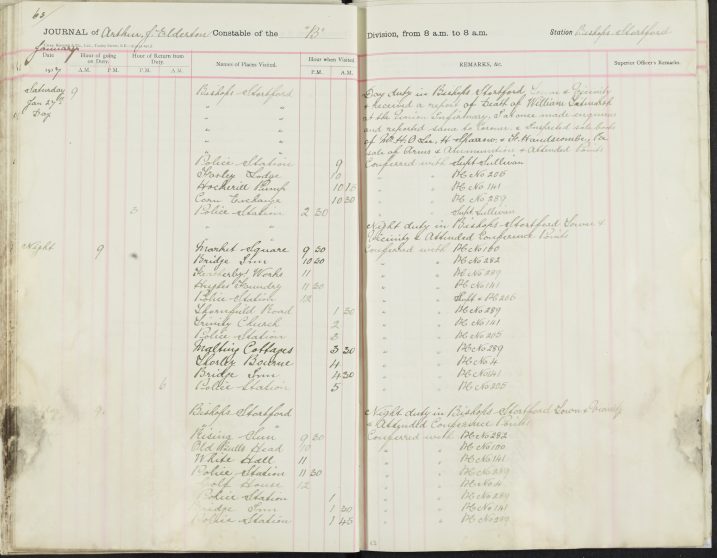 63
JOURNAL of Arthur J. Elderton Constable of the "B" Division, from 8 a.m. to 8 am. Station Bishops Stortford
January
Date Hour of going on Duty. Hour of Return from Duty. Names of Places Visited. Hour when Visited REMARKS, &c. Superior Officer's Remarks.
A.M. P.M. P.M. A.M. P.M. A.M.
Saturday 9 Bishops Stortford Day duty in Bishops Stortford, Town & Vicinity
Jan 27th " " & received a report of Death of William
Day " " at the Union Infirmary. I at once made enquiries
" " and reported same to Coroner & Inspected sale books
" " of H. Sparrow, & H. Handscombe,
" " sale of Arms & Ammunition & Attended Points
Police Station 9 Conferred with Supt Sullivan
Thorley Lodge 10 " " PC No 205
Hockerill Pump 10 15 " " PC No 141
Corn Exchange 10 30 " " PC No 289
3 Police Station 2 30 " " Supt Sullivan
" " Night duty in Bishops Stortford Town &
" " Vicinity & Attended Conference Points
Night 9 Market Square 9 30 Conferred with PC No 100
Bridge Inn 10 20 " " PC No 282
Works 11 " " PC No 289
Foundry 11 30 " " PC No 141
Police Station 12 " " Supt & PC 205
Thornfield Road 1 30 " " PC No 289
Trinity Church 2 " " PC No 141
Police Station 3 " " PC No 205
Malting Cottages 3 30 " " PC No 289
Thorley Bourne 4 " " PC No 4
Bridge Inn 4 30 " " PC No 141
6 Police Station 5 " " PC No 205
9 Bishops Stortford Night duty in Bishops Stortford Town & Vicinity
" " & Attended Conference Points
Rising Sun 9 30 Conferred with PC No 282
Old Bulls Head 10 " " PC No 100
White Hall 11 " " PC No 141
Police Station 11 30 " " PC No 289
Golf House 12 " " PC No 4
Police Station 1 " " PC No 289
Bridge Inn 1 30 " " PC No 141
Police Station 1 45 " " PC No 289